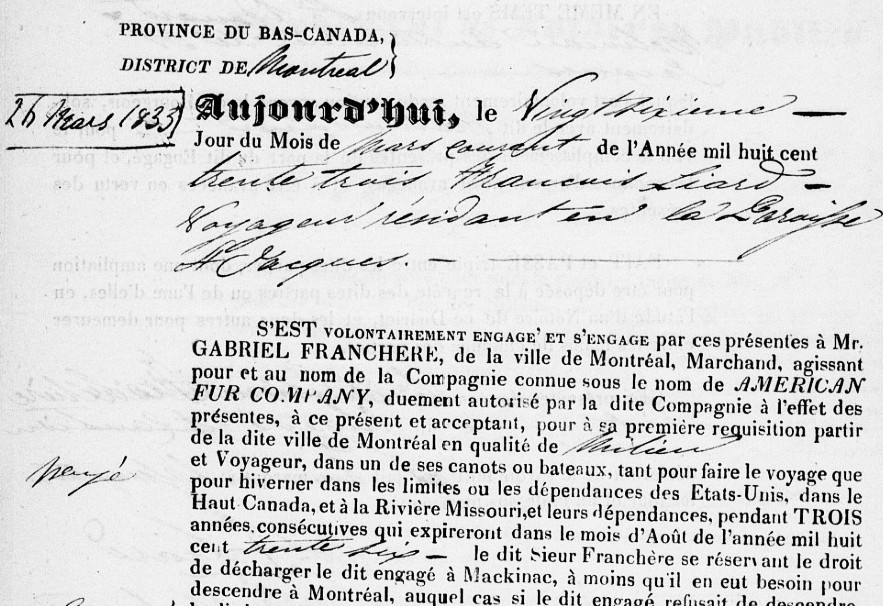 PROVINCE DU BAS-CANADA,
DISTRICT DE Montreal
26 Mars 1833
Aujourd'hui, le Vingt sixieme —
Jour du Mois de Mars courant de l'Année mil huit cent
trente trois Francois Liard —
Voyageur résidant en la Paroisse
St Jacques. —
S'EST VOLONTAIREMENT ENGAGE, ET S'ENGAGE par ces présentes à Mr.
GABRIEL FRANCHERE, de la ville de Montréal, Marchand, agissant
pour et au nom de la Compagnie connue sous le nom de AMERICAN
FUR COMPANY, duement autorisé par la dite Compagnie à l'effet des
présentes, à ce présent et acceptant, pour à sa première requisition partir
de la dite ville de Montréal en qualité de Milieu
et Voyageur, dans un de ses canots ou bateaux, tant pour faire le voyage que
pour hiverner dans les limites ou les dépendances des Etats-Unis, dans le
Haut Canada, et à la Rivière Missouri, et leurs dépendances, pendant TROIS
années, consécutives qui expireront dans le mois d'Août de l'année mil huit
cent trente six — le dit Sieur Franchère se réservant le droit
de décharger le dit engagé à Mackinac, à moins qu'il en eut besoin pour
descendre à Montréal, auquel cas si le dit engagé refusait de descendre